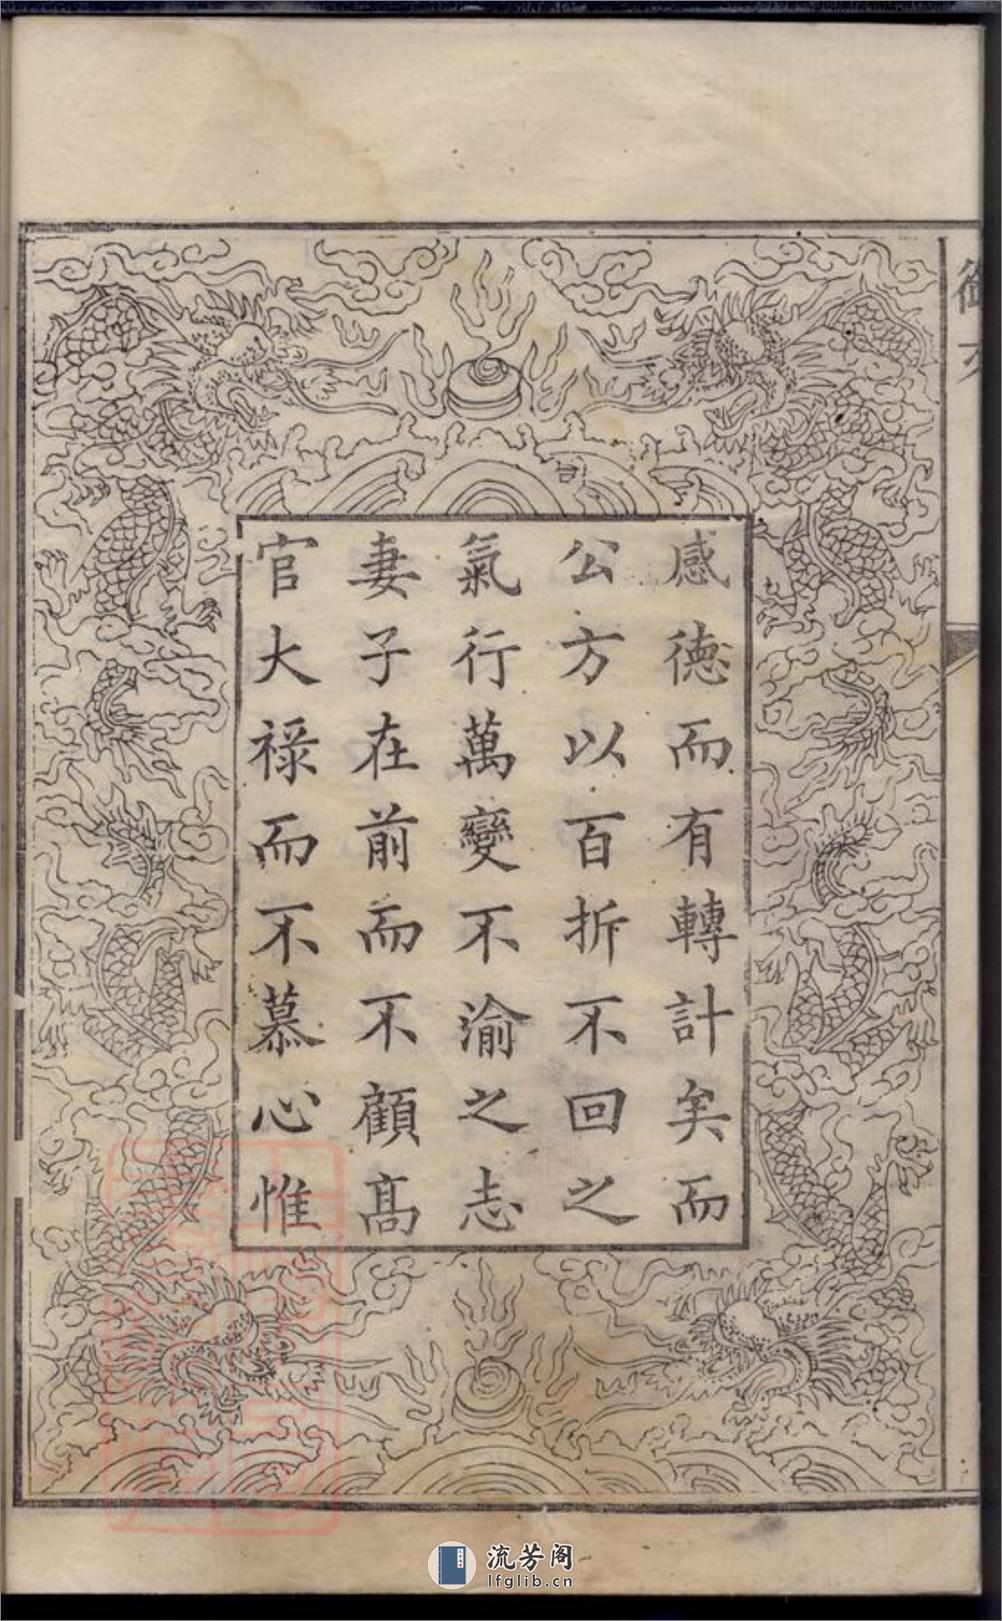 感德而有轉計矣而
公方以百折不回之
氣行萬變不渝之志
妻子在前而不顧高
官大祿而不慕心惟
流芳阁
lfglib.cn